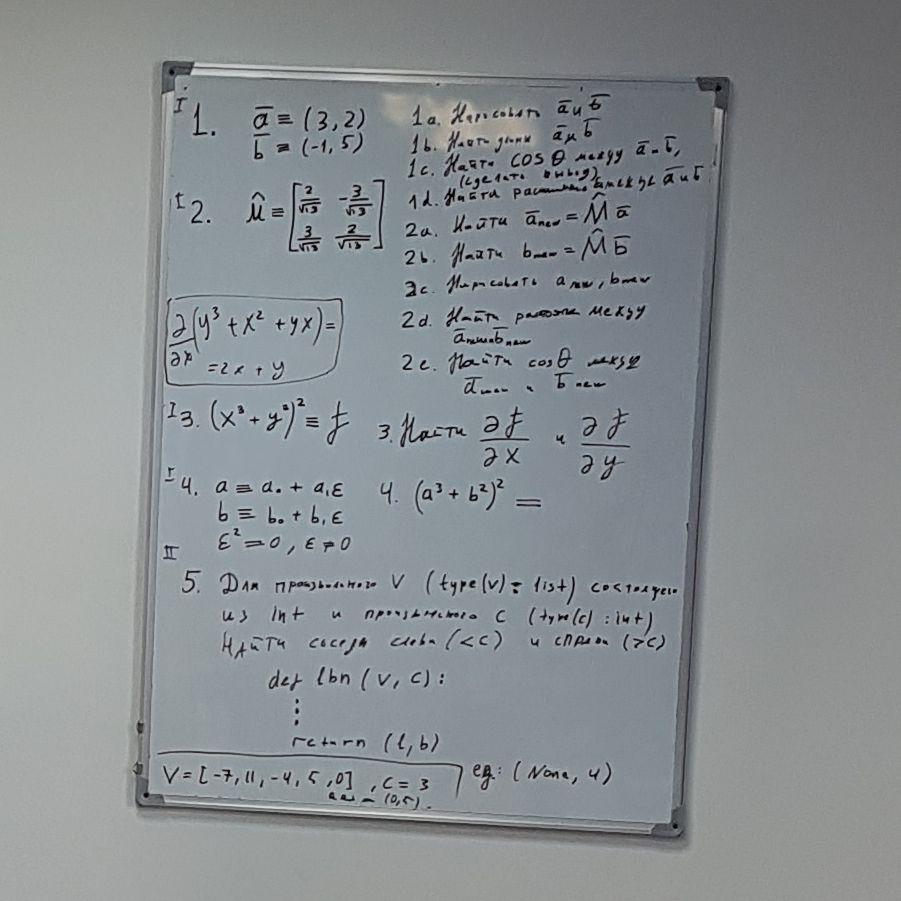 I 1. a̅ ≡ (3, 2)
b̅ ≡ (-1, 5)
1a. Нарисовать a̅ и b̅
1b. Найти длины a̅ и b̅
1c. Найти cos θ между a̅ и b̅,
(сделать вывод)
1d. Найти расстояние между a̅ и b̅
I 2. M̂ ≡ [2/√13 -3/√13
3/√13 2/√13]
2a. Найти a̅new = M̂ a̅
2b. Найти bnew = M̂ b̅
2c. Нарисовать anew, bnew
2d. Найти между
a̅new b̅new
2e. Найти cos θ между
a̅new и b̅new
∂/∂x (y³ + x² + yx) =
= 2x + y
I 3. (x³ + y²)² ≡ f
3. Найти ∂f/∂x и ∂f/∂y
I 4. a ≡ a₀ + a₁ε
b ≡ b₀ + b₁ε
ε² = 0, ε ≠ 0
4. (a³ + b²)² =
II
5. Для произвольного V (type(v) = list) состоящего
из int и произвольного C (type(c) : int)
Найти соседи слева (<C) и справа (>C)
def lbn (v, c):
⋮
return (l, b)
V = [-7, 11, -4, 5, 0], C = 3
(0,5).
eg: (None, 4)